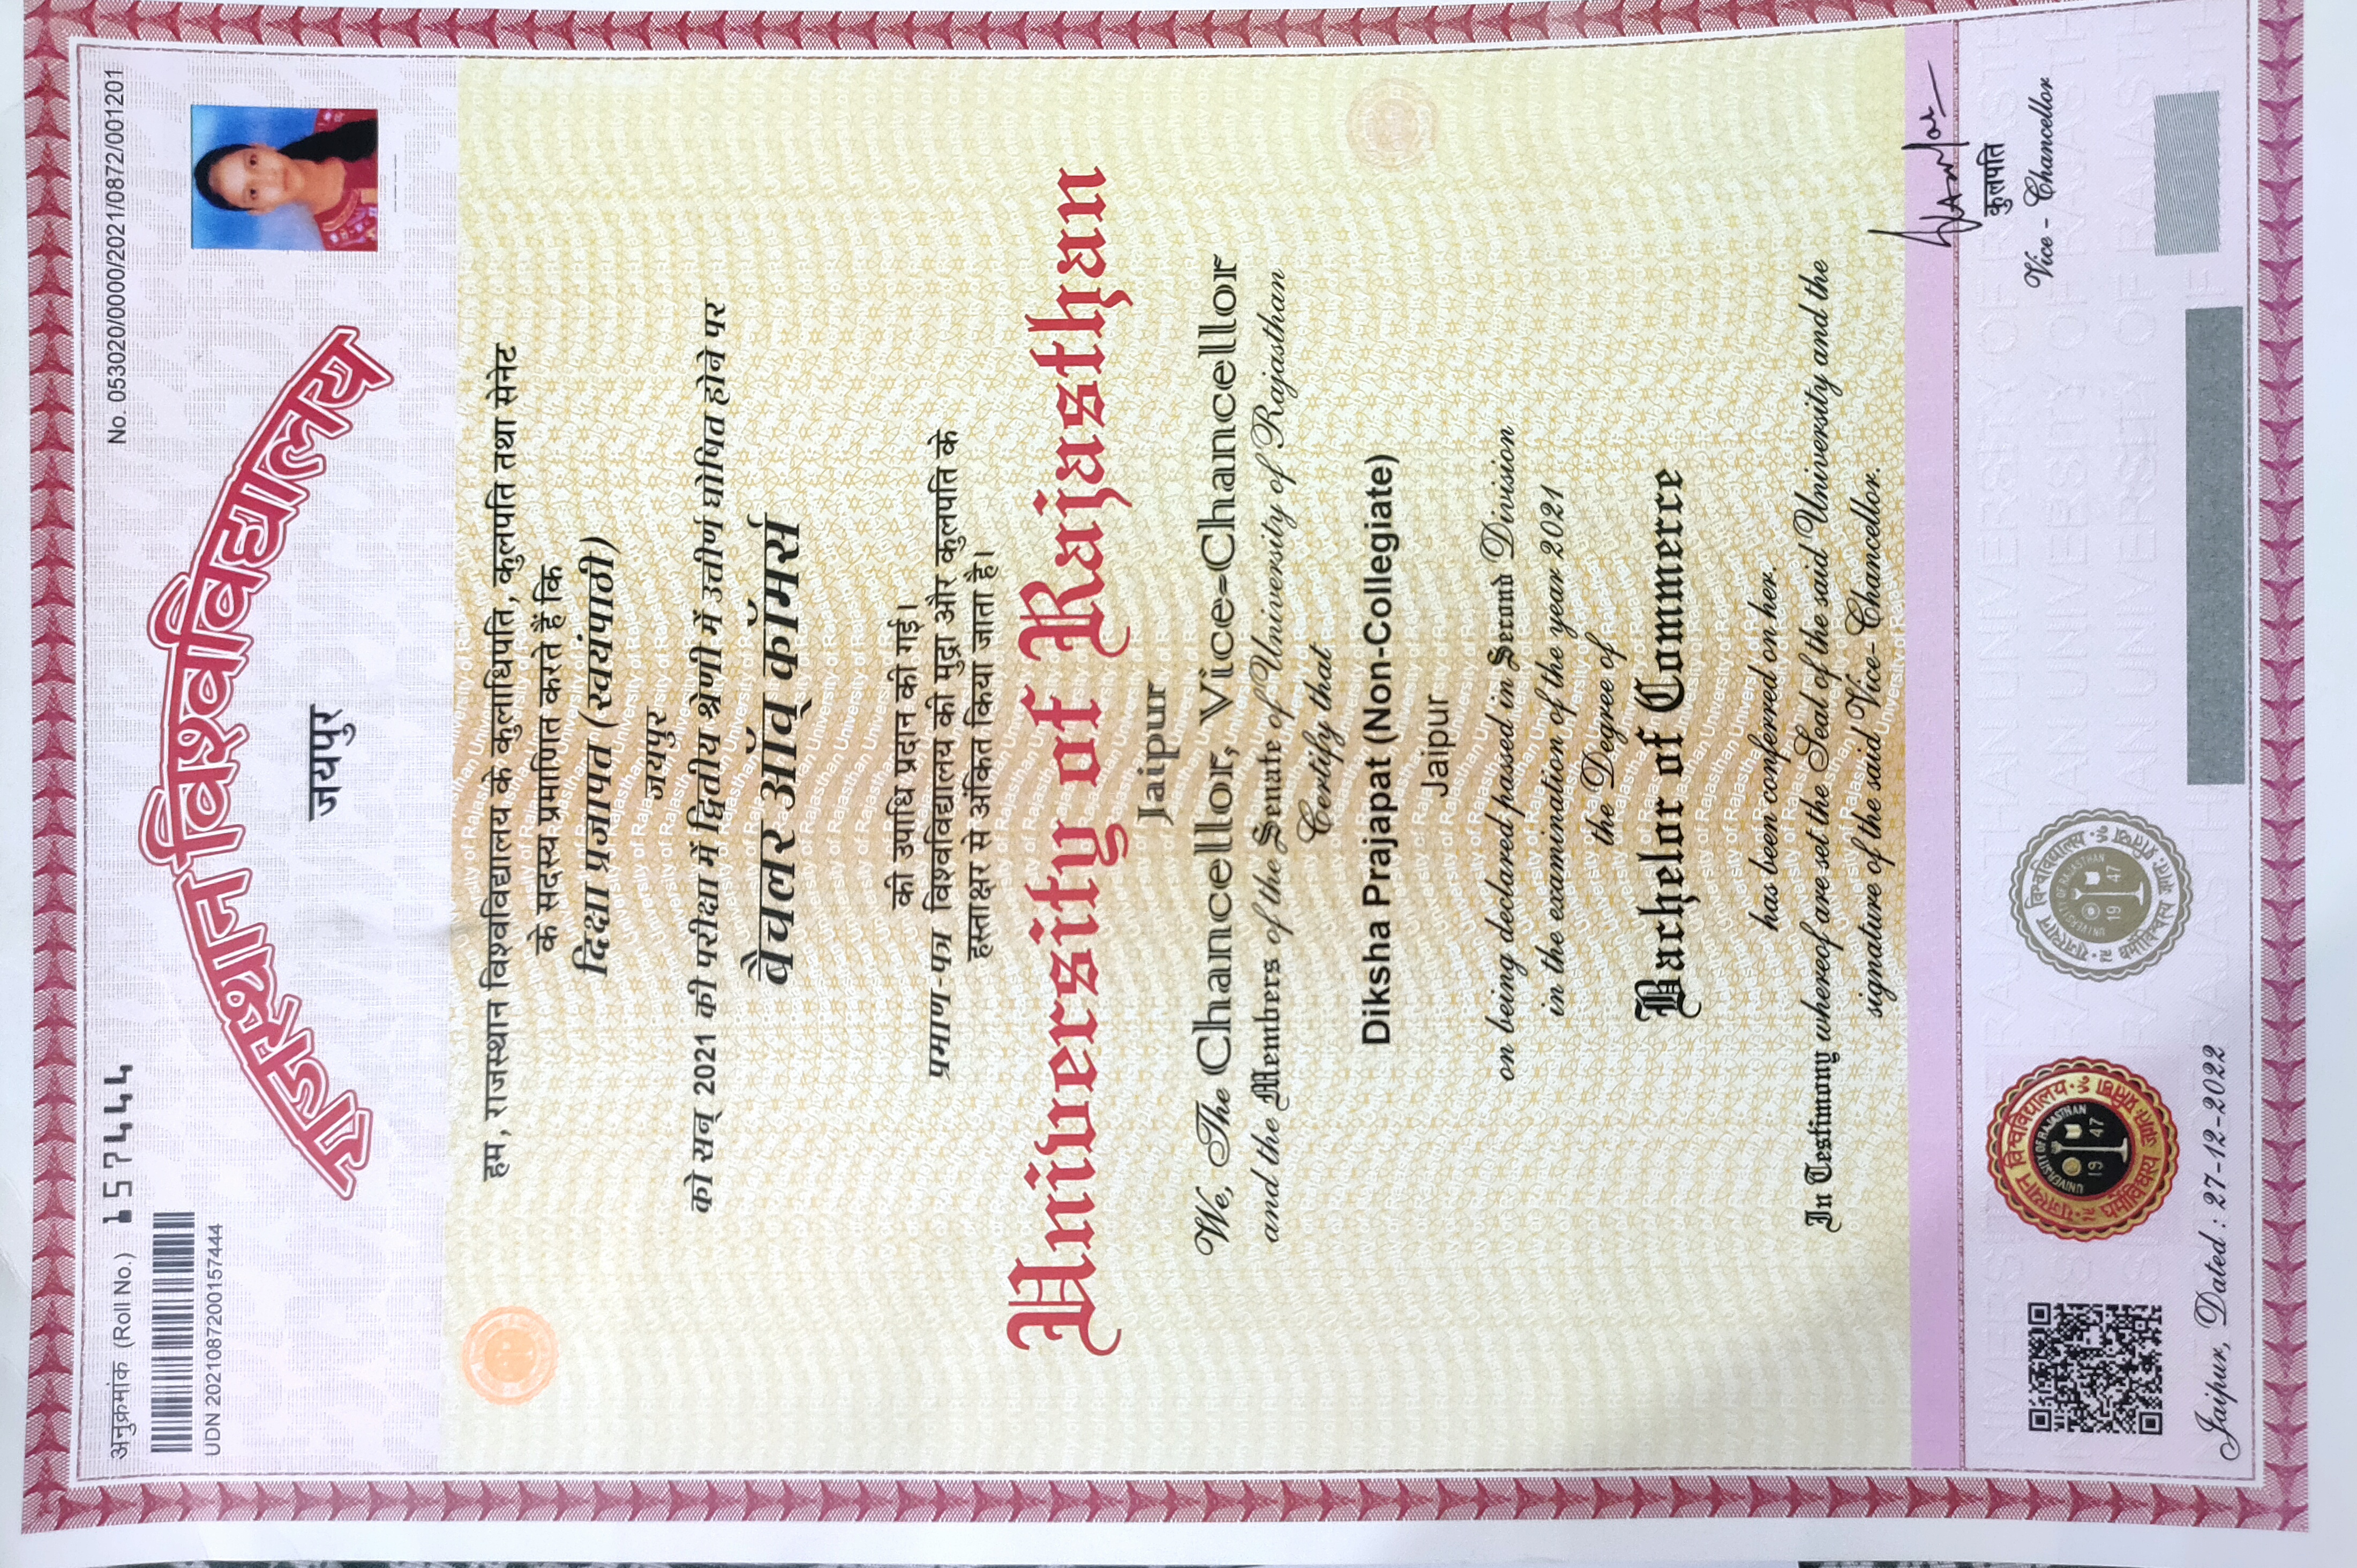 अनुक्रमांक (Roll No.) 157444
No. 053020/0000/2021/0872/001201
UDN 2021087200157444
राजस्थान विश्वविद्यालय
जयपुर
हम, राजस्थान विश्वविद्यालय के कुलाधिपति, कुलपति तथा सेनेट
के सदस्य प्रमाणित करते हैं कि
दिक्षा प्रजापत (स्वयंपाठी)
जयपुर
को सन् 2021 की परीक्षा में द्वितीय श्रेणी में उत्तीर्ण घोषित होने पर
बैचलर ऑव् कॉमर्स
की उपाधि प्रदान की गई।
प्रमाण-पत्र विश्वविद्यालय की मुद्रा और कुलपति के
हस्ताक्षर से अंकित किया जाता है।
University of Rajasthan
Jaipur
We, The Chancellor, Vice-Chancellor
and the Members of the Senate of University of Rajasthan
Certify that
Diksha Prajapat (Non-Collegiate)
Jaipur
on being declared passed in Second Division
in the examination of the year 2021
the Degree of
Bachelor of Commerce
has been conferred on her.
In Testimony whereof are set the Seal of the said University and the
signature of the said Vice-Chancellor.
कुलपति
Vice - Chancellor
राजस्थान विश्वविद्यालय
UNIVERSITY OF RAJASTHAN
19 47
राजस्थान विश्वविद्यालय
UNIVERSITY OF RAJASTHAN
19 47
Jaipur, Dated : 27-12-2022